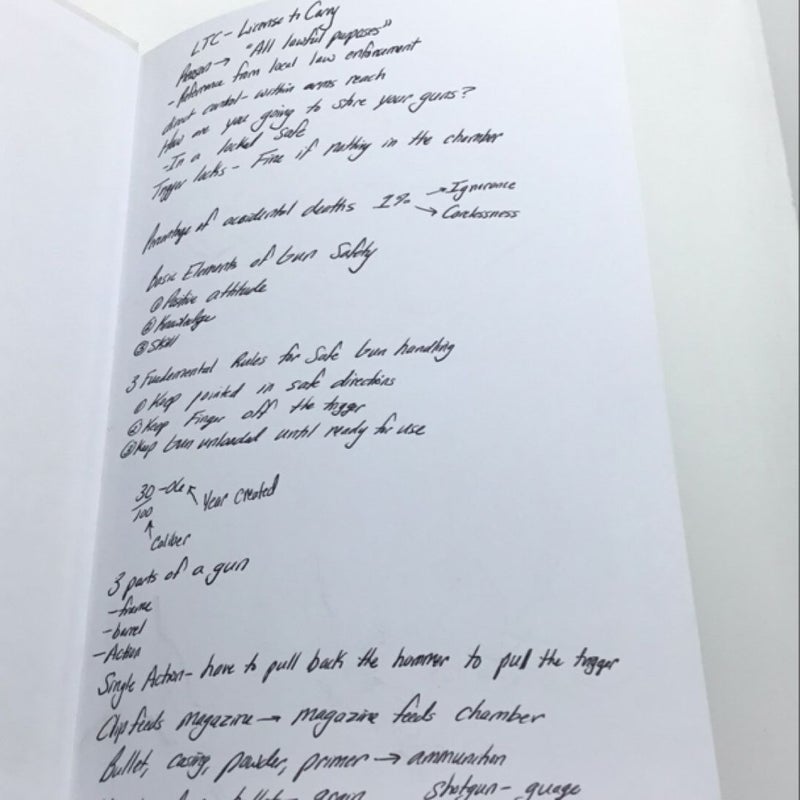 LTC - License to Carry
Reason → "All lawful purposes"
- Reference from local law enforcement
direct control - within arms reach
How are you going to store your guns?
- In a locked safe
Trigger locks - Fine if nothing in the chamber
Percentage of accidental deaths 1% → Ignorance
→ Carelessness
Basic Elements of Gun Safety
① Positive attitude
② Knowledge
③ Skill
3 Fundemental Rules for Safe Gun handling
① Keep pointed in safe directions
② Keep Finger off the trigger
③ Keep Gun unloaded until ready for use
30 - 06 ↖ Year Created
100
↑
Caliber
3 parts of a gun
- frame
- barrel
- Action
Single Action - have to pull back the hammer to pull the trigger
Clip feeds magazine → magazine feeds chamber
Bullet, casing, powder, primer → ammunition
bullet - grain shotgun - guage